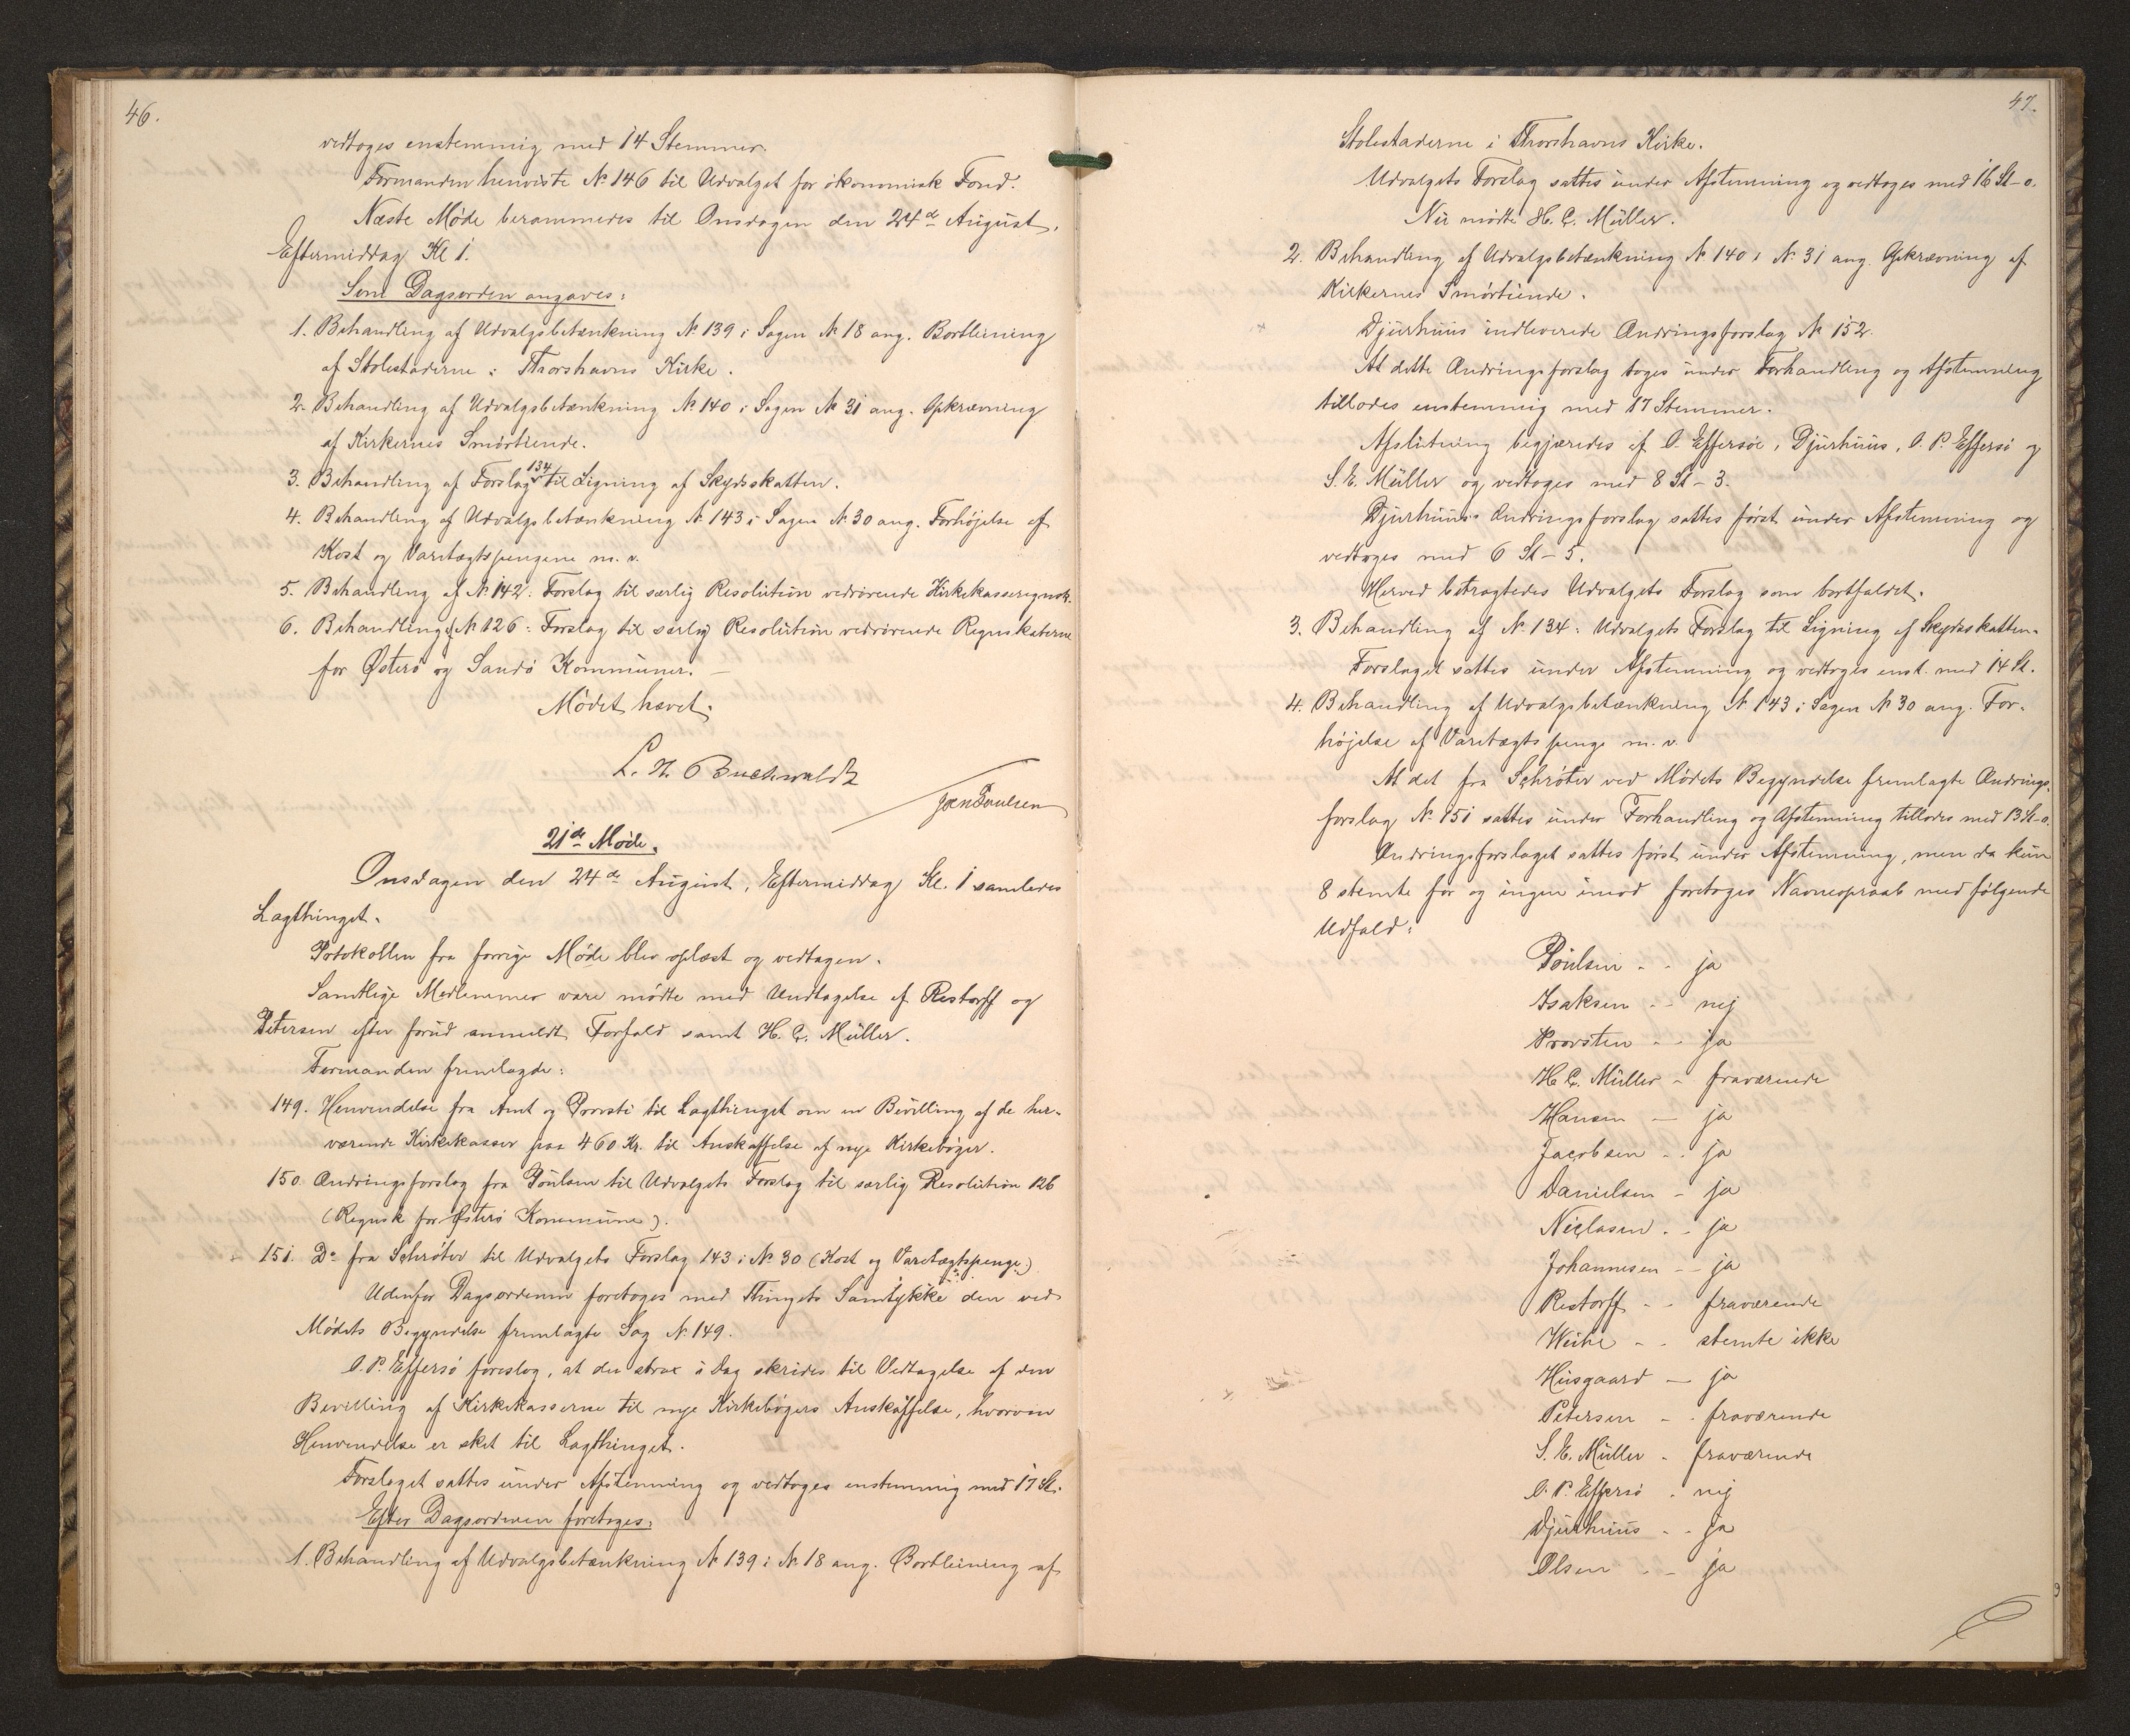 46.
vedtoges enstemmig med 14 Stemmer.
Formanden henviste No 146 til Udvalget for økonomisk Fond.
Næste Møde berammedes til Onsdagen den 24de August,
Eftermiddag Kl 1.
Som Dagsorden angaves:
1. Behandling af Udvalgsbetænkning No 139 i Sagen No 18 ang. Bortleining
af Stolestaderne i Thorshavns Kirke.
2. Behandling af Udvalgsbetænkning No 140 i Sagen No 31 ang. Opkrævning
af Kirkernes Smørtiende.
3. Behandling af Forslag 134 til Ligning af Skydsskatten.
4. Behandling af Udvalgsbetænkning No 143 i Sagen No 30 ang. Forhøjelse af
Kost og Varetægtspengene m. v.
5. Behandling af No 142: Forslag til særlig Resolution vedrørende Kirkekasseregnsk.
6. Behandling af No 126: Forslag til særlig Resolution vedrørende Regnskaberne
for Østerø og Sandø Kommuner. —
Mødet hævet.
L. H. Buchwaldt
Joen Poulsen
21de Møde.
Onsdagen den 24de August, Eftermiddag Kl. 1 samledes
Lagthinget.
Potokollen fra forrige Møde blev oplæst og vedtagen.
Samtlige Medlemmer vare mødte med Undtagelse af Restorff og
Petersen efter forud anmeldt Forfald samt H. C. Müller.
Formanden fremlagde:
149. Henvendelse fra Amt og Provsti til Lagthinget om en Bevilling af de her-
værende Kirkekasser paa 460 Kr. til Anskaffelse af nye Kirkebøger.
150. Ændringsforslag fra Poulsen til Udvalgets Forslag til særlig Resolution 126
(Regnsk for Østerø Kommune).
151. Do fra Schrøter til Udvalgets Forslag 143 i No 30 (Kost og Varetægtspenge.)
Udenfor Dagsordenen foretoges med Thingets Samtykke den ved
Mødets Begyndelse fremlagte Sag No 149.
O. P. Effersø foreslog, at der strax i Dag skrides til Vedtagelse af den
Bevilling af Kirkekasserne til nye Kirkebøgers Anskaffelse, hvorom
Henvendelse er sket til Lagthinget.
Forslaget sattes under Afstemning og vedtoges enstemmig med 17 St.
Efter Dagsordenen foretoges:
1. Behandling af Udvalgsbetænkning No 139 i No 18 ang. Bortleining af
47.
Stolestaderne i Thorshavns Kirke.
Udvalgets Forslag sattes under Afstemning og vedtoges med 16 St–0.
Nu mødte H. C. Müller.
2. Behandling af Udvalgsbetænkning No 140 i No 31 ang. Opkrævning af
Kirkernes Smørtiende.
Djurhuus indleverede Ændringsforslag No 152.
At dette Ændringsforslag toges under Forhandling og Afstemning
tillodes enstemmig med 17 Stemmer.
Afslutning begjæredes af O. Effersøe, Djurhuus, O. P. Effersø og
S. E. Müller og vedtoges med 8 St – 3.
Djurhuus's Ændringsforslag sattes først under Afstemning og
vedtoges med 6 St – 5.
Herved betragtedes Udvalgets Forslag som bortfaldet.
3. Behandling af No 134: Udvalgets Forslag til Ligning af Skydsskatten.
Forslaget sattes under Afstemning og vedtoges enst. med 14 St.
4. Behandling af Udvalgsbetænkning No 143 i Sagen No 30 ang. For-
højelse af Varetægtspenge m. v.
At det fra Schrøter ved Mødets Begyndelse fremlagte Ændrings-
forslag No 151 sattes under Forhandling og Afstemning tillodes med 13 St–0.
Ændringsforslaget sattes først under Afstemning, men da kun
8 stemte for og ingen imod foretoges Navneopraab med følgende
Udfald:
Poulsen - - ja
Isaksen - - nej
Provsten - - ja
H. C. Müller - fraværende
Hansen — ja
Jacobsen - - ja
Danielsen - ja
Niclasen - - ja
Johannesen - - ja
Restorff - - fraværende
Weihe - - stemte ikke
Husgaard — ja
Petersen - - fraværende
S. E. Müller - fraværende
O. P. Effersø - nej
Djurhuus - - ja
Olsen - - ja